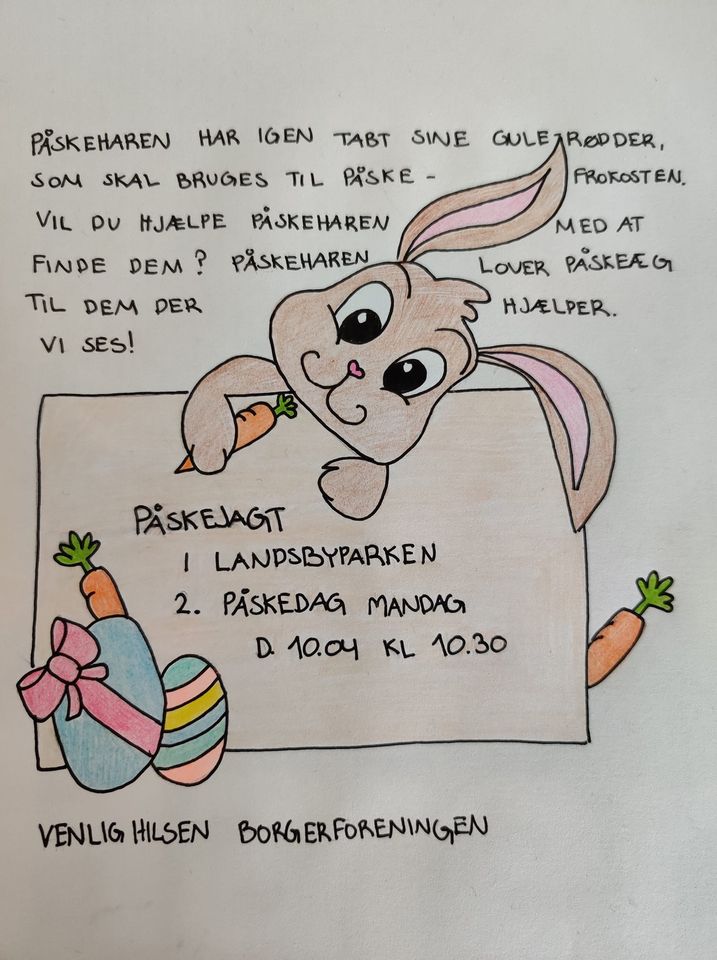 PÅSKEHAREN HAR IGEN TABT SINE GULERØDDER,
SOM SKAL BRUGES TIL PÅSKE - FROKOSTEN.
VIL DU HJÆLPE PÅSKEHAREN MED AT
FINDE DEM? PÅSKEHAREN LOVER PÅSKEÆG
TIL DEM DER HJÆLPER.
VI SES!
PÅSKEJAGT
I LANDSBYPARKEN
2. PÅSKEDAG MANDAG
D. 10.04 KL 10.30
VENLIG HILSEN BORGERFORENINGEN